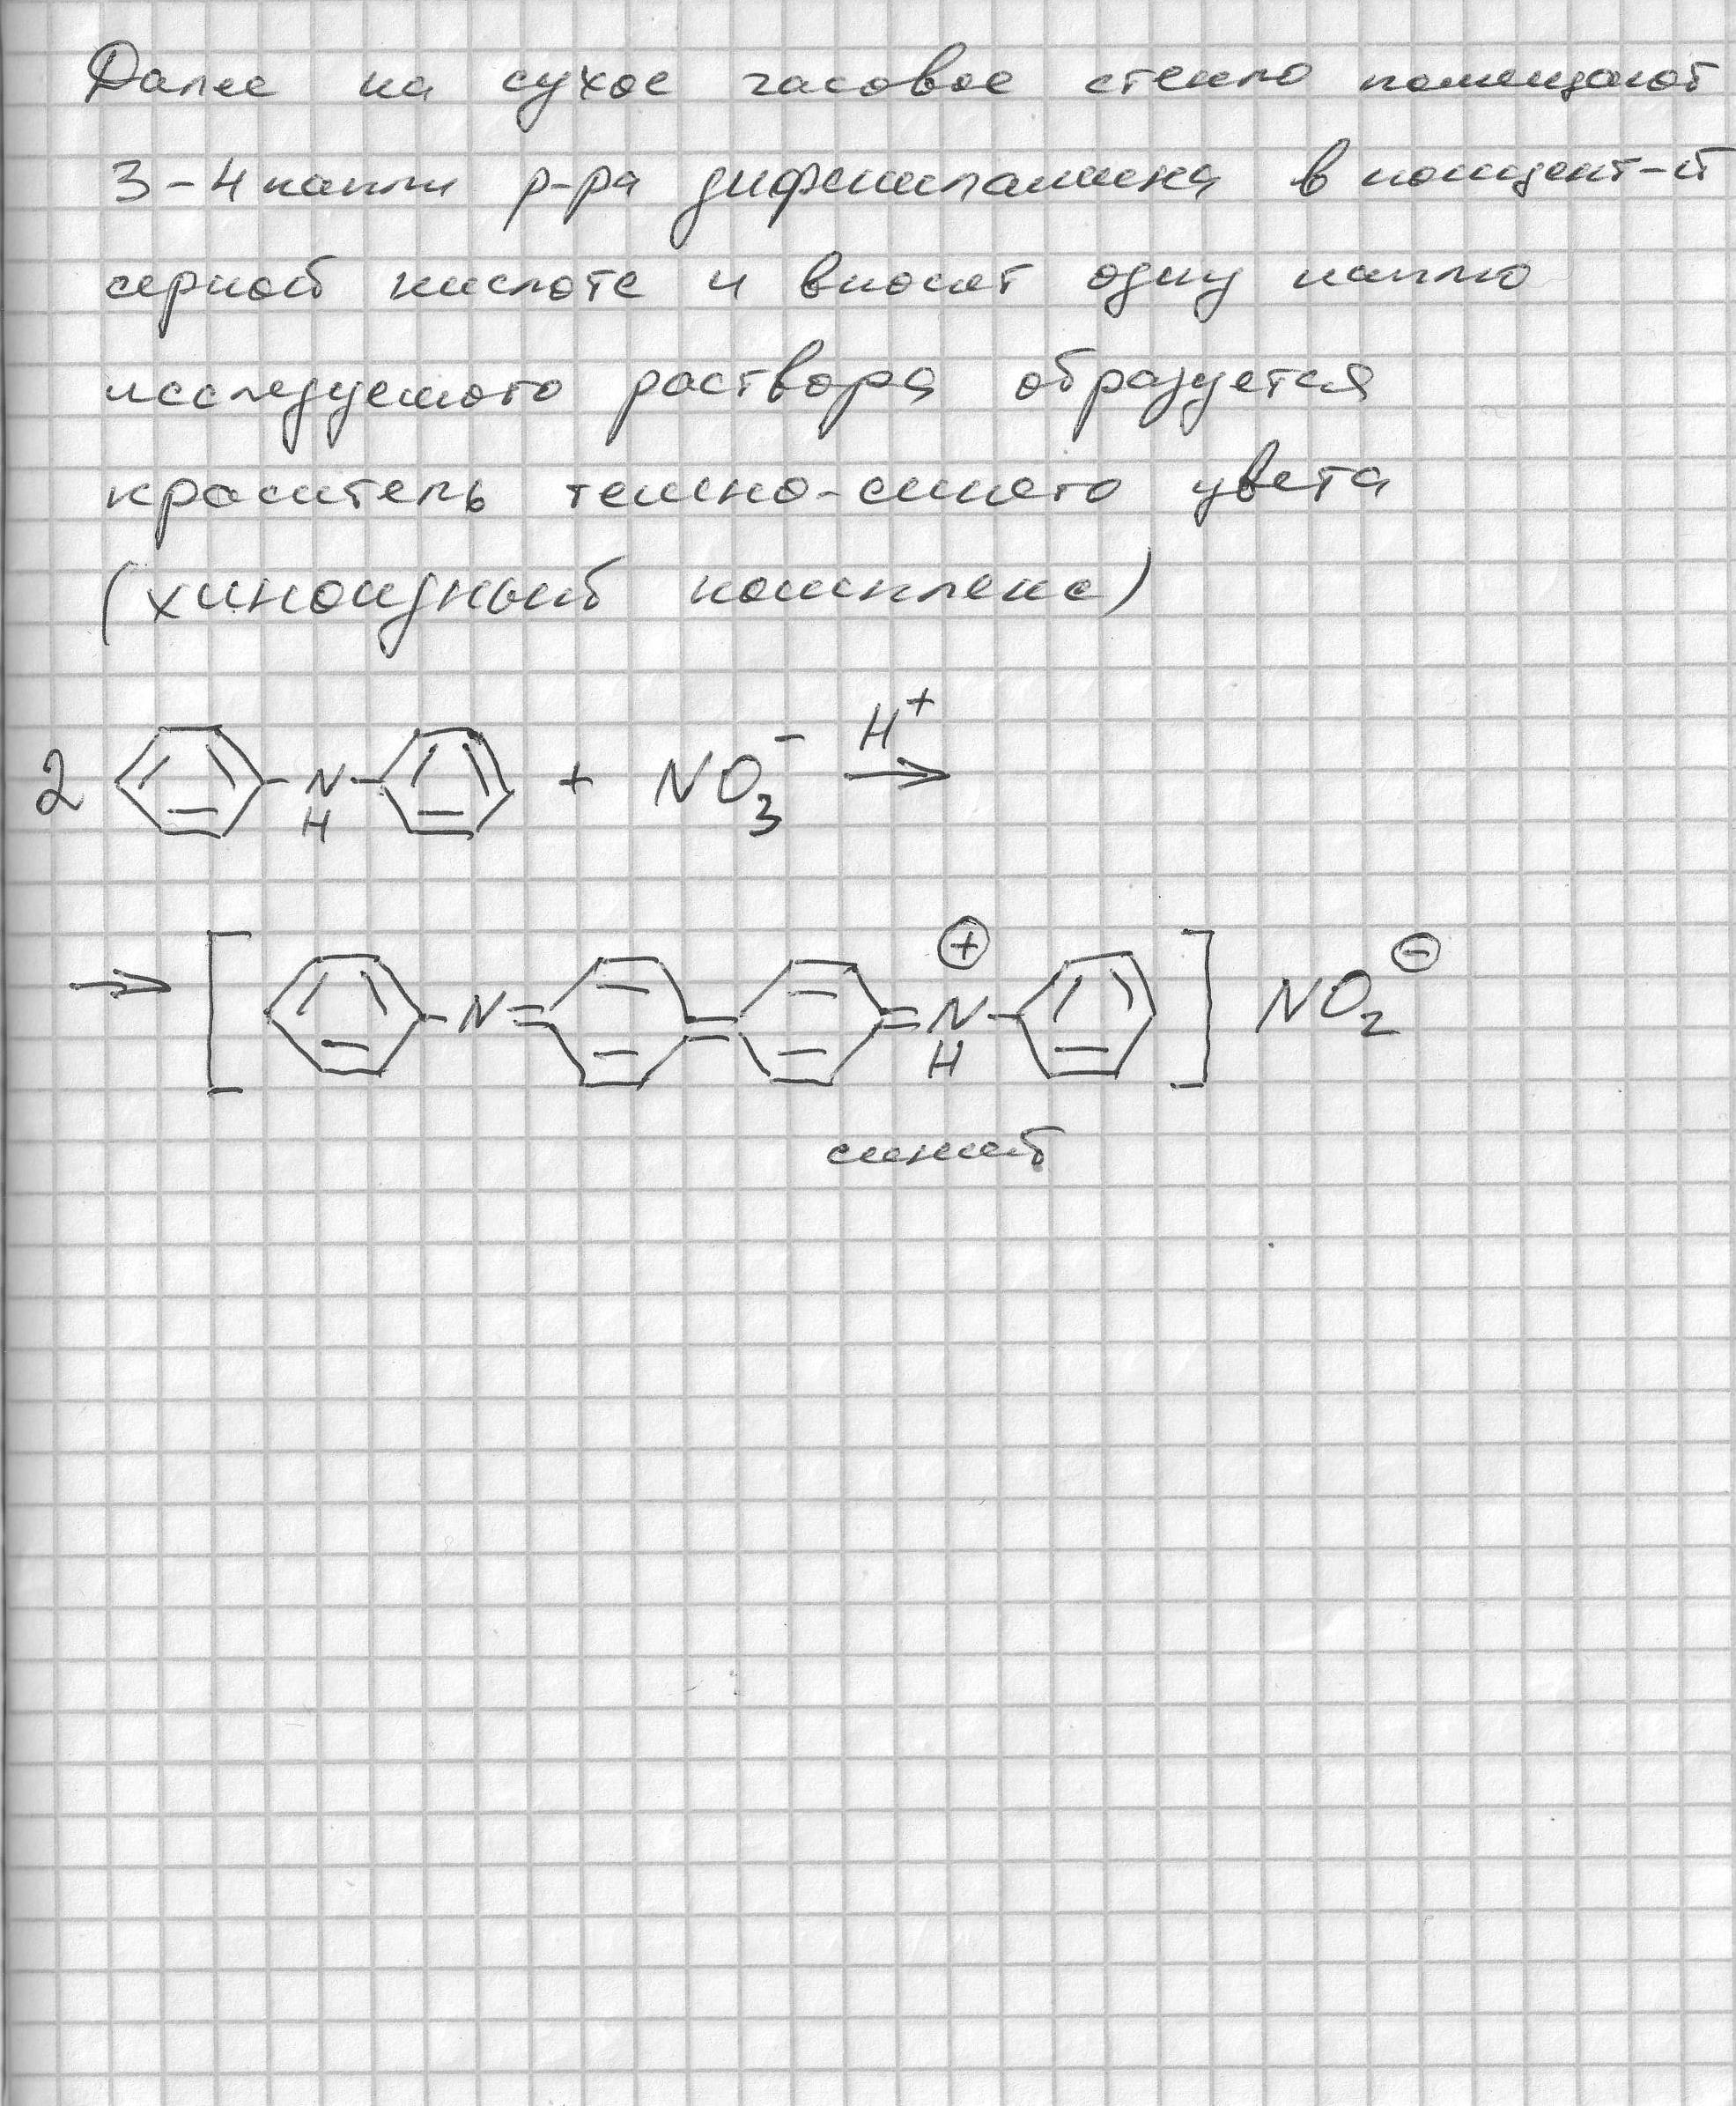 Далее на сухое часовое стекло помещают
3-4 капли р-ра дифениламина в концент-й
серной кислоте и вносят одну каплю
исследуемого раствора образуется
краситель темно-синего цвета
(хиноидный комплекс)
2 N H + NO3- H+ →
→ [ N = = N H ⊕ ] NO2 ⊖
синий